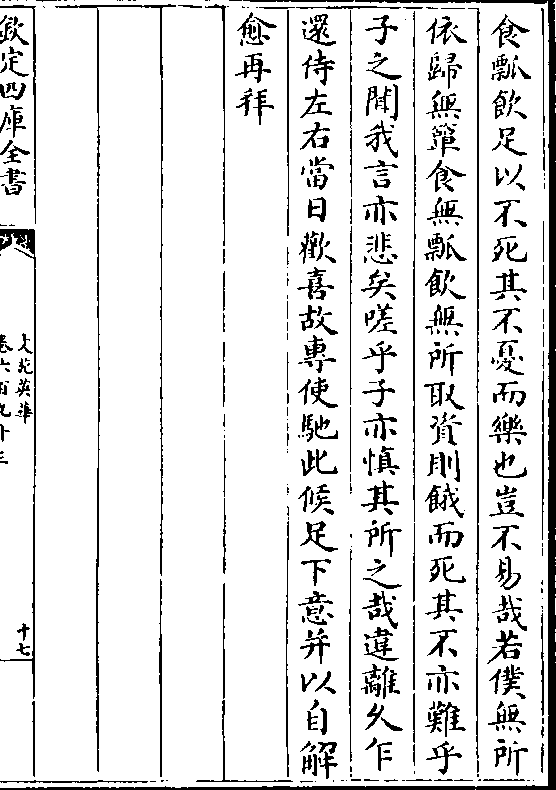 食瓢飲足以不死其不憂而樂也豈不易哉若僕無所
依歸無簞食無瓢飲無所取資則餓而死其不亦難乎
子之聞我言亦悲矣嗟乎子亦慎其所之哉違離久乍
還侍左右當日歡喜故專使馳此候足下意并以自解
愈再拜
欽定四庫全書
文苑英華
卷六百九十三
十七